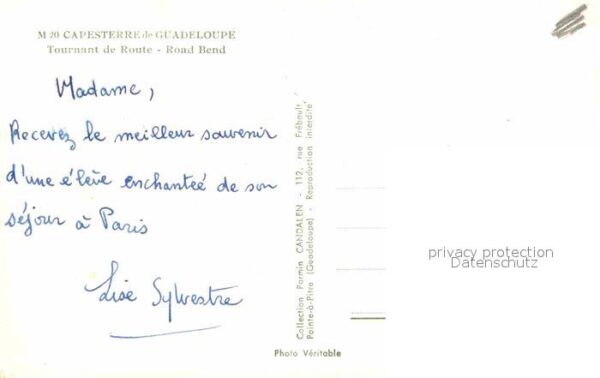 M 20 CAPESTERRE de GUADELOUPE
Tournant de Route - Road Bend
Madame,
Recevez le meilleur souvenir
d'une élève enchantée de son
séjour à Paris
Lise Sylvestre
Collection Parmin CANDALEN - 112, rue Frébault
Pointe-à-Pitre (Guadeloupe) - Reproduction interdite
Photo Véritable
privacy protection
Datenschutz